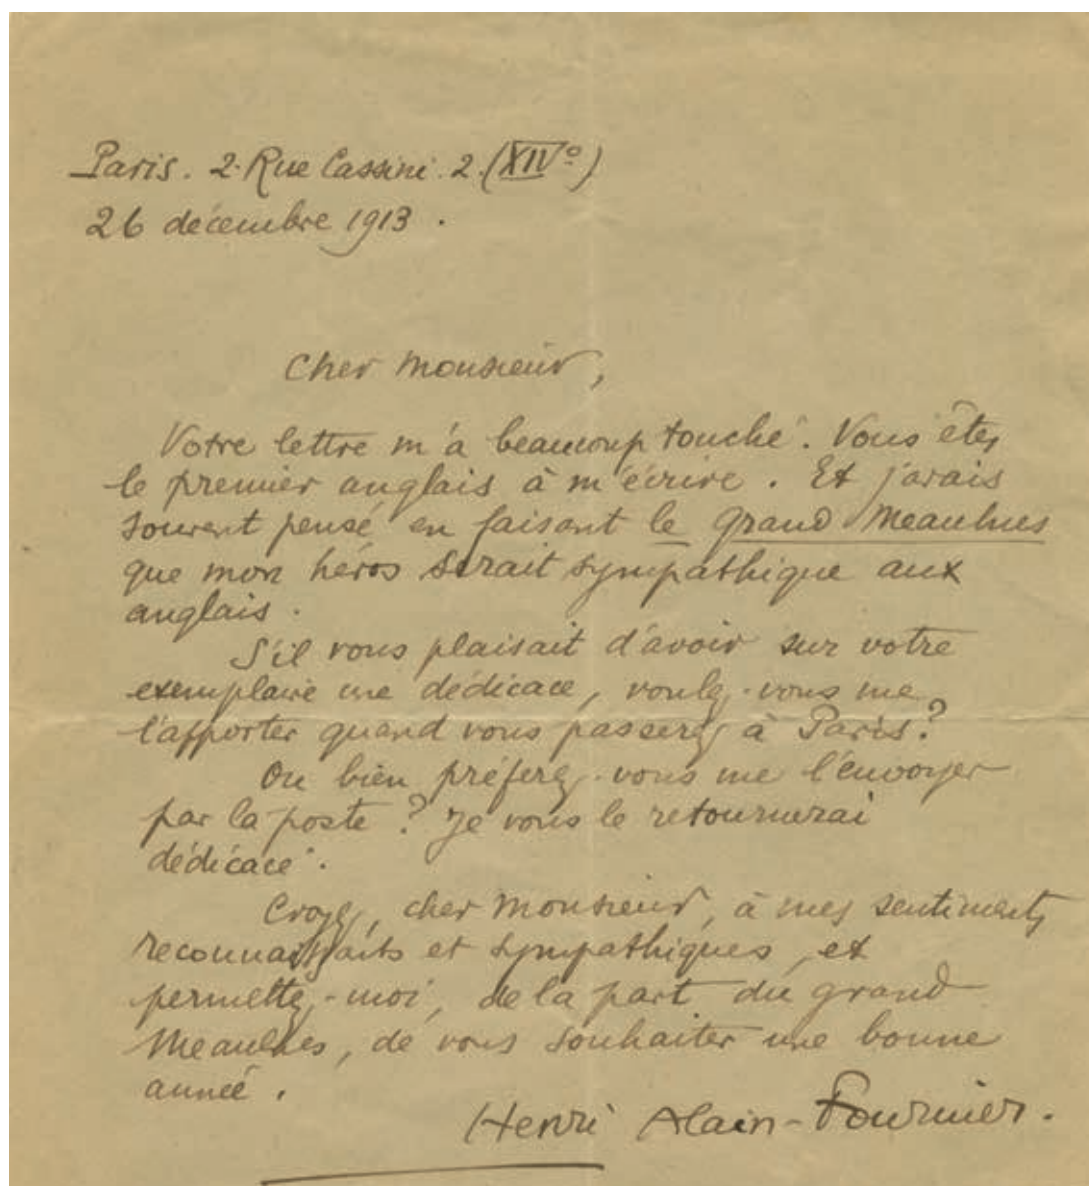 Paris. 2. Rue Cassini. 2. (XIVº)
26 décembre 1913.
Cher Monsieur,
Votre lettre m'a beaucoup touché. Vous êtes
le premier anglais à m'écrire. Et j'avais
souvent pensé en faisant le grand Meaulnes
que mon héros serait sympathique aux
anglais.
S'il vous plaisait d'avoir sur votre
exemplaire une dédicace, voulez-vous me
l'apporter quand vous passerez à Paris?
Ou bien préferez-vous me l'envoyer
par la poste? Je vous le retournerai
dédicacé.
Croyez, cher Monsieur, à mes sentiments
reconnaissants et sympathiques, et
permettez-moi, de la part du grand
Meaulnes, de vous souhaiter une bonne
année.
Henri Alain-Fournier.